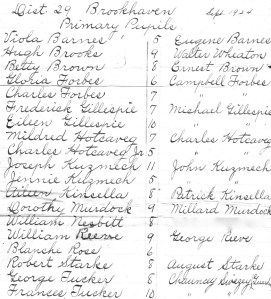 Dist 29 Brookhaven Sept. 1924
Primary Pupils
Viola Barnes 5 Eugene Barnes
Hugh Brooks 9 Walter Wheaton
Betty Brown 8 Ernest Brown
Gloria Forbes 6 Campbell Forbes
Charles Forbes 7 " "
Frederick Gillespie 7 Michael Gillespie
Eileen Gillespie 10 " "
Mildred Hotcaveg 7 Charles Hotcaveg
Charles Hotcaveg Jr. 5 "
Joseph Kuzmech 11 John Kuzmech
Jennie Kuzmech 5 " "
Aileen Kinsella 8 Patrick Kinsella
Dorothy Murdock 9 Millard Murdock
William Nesbitt 8
William Reeve 9 George Reeve
Blanche Rose 6
Robert Starke 8 August Starke
George Tucker 8 Chauncey
Frances Tucker 10 " "